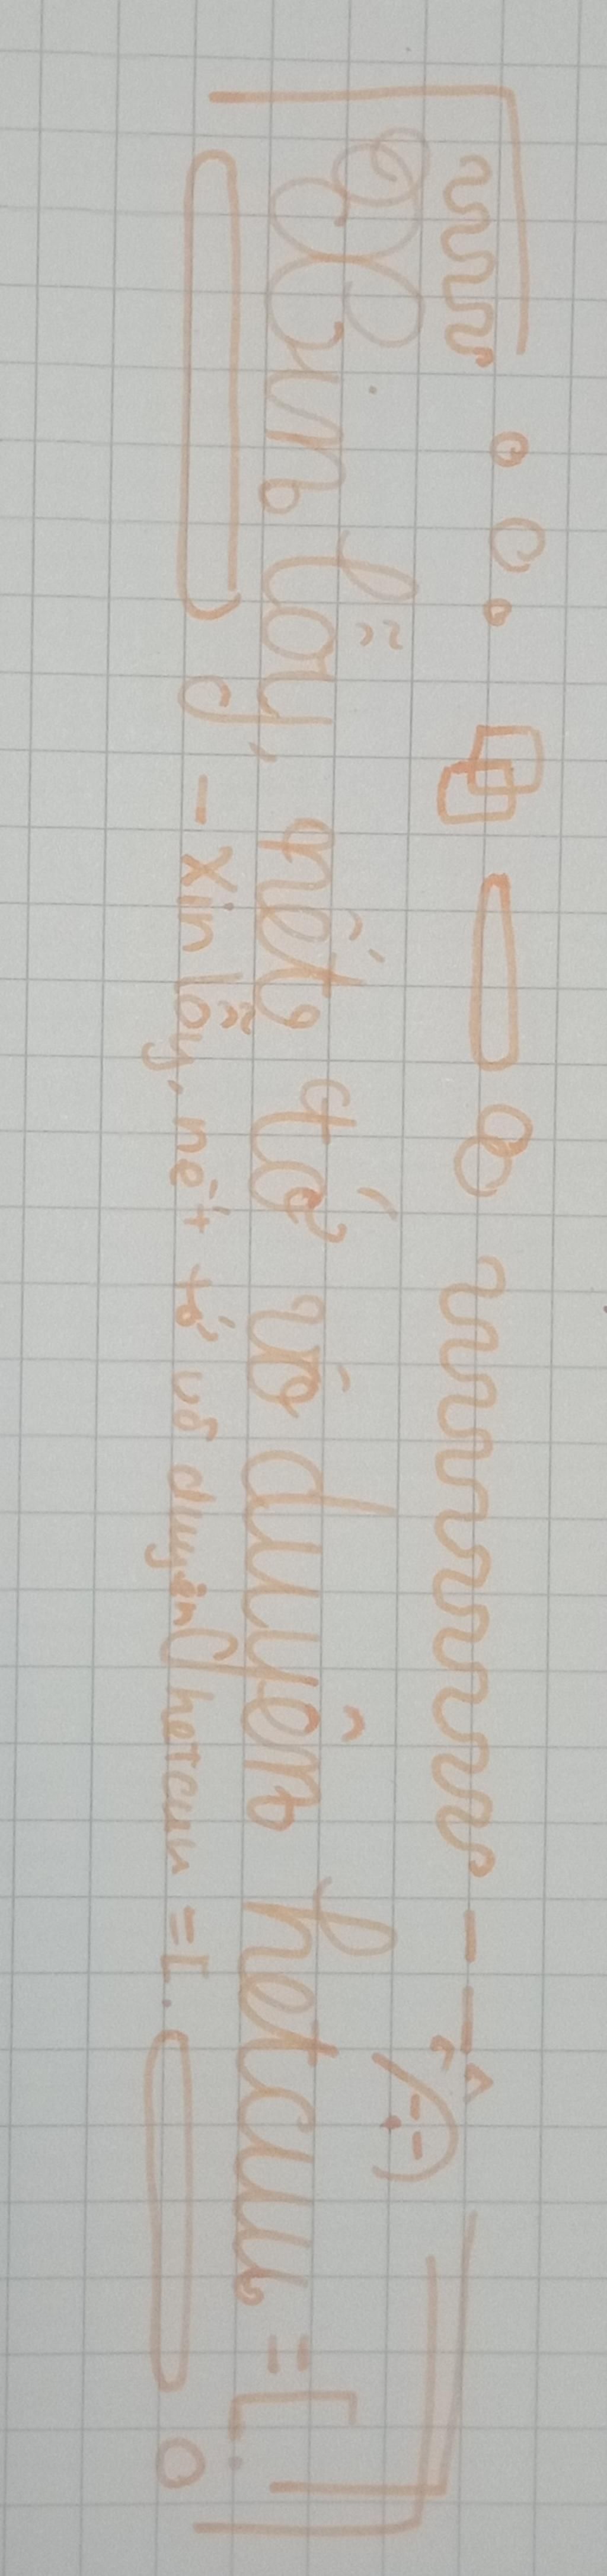 Xin lỗy, nét tớ vô duyên hetcuu =[.
- Xin lỗy, nét tớ vô duyên hetcuu =[.